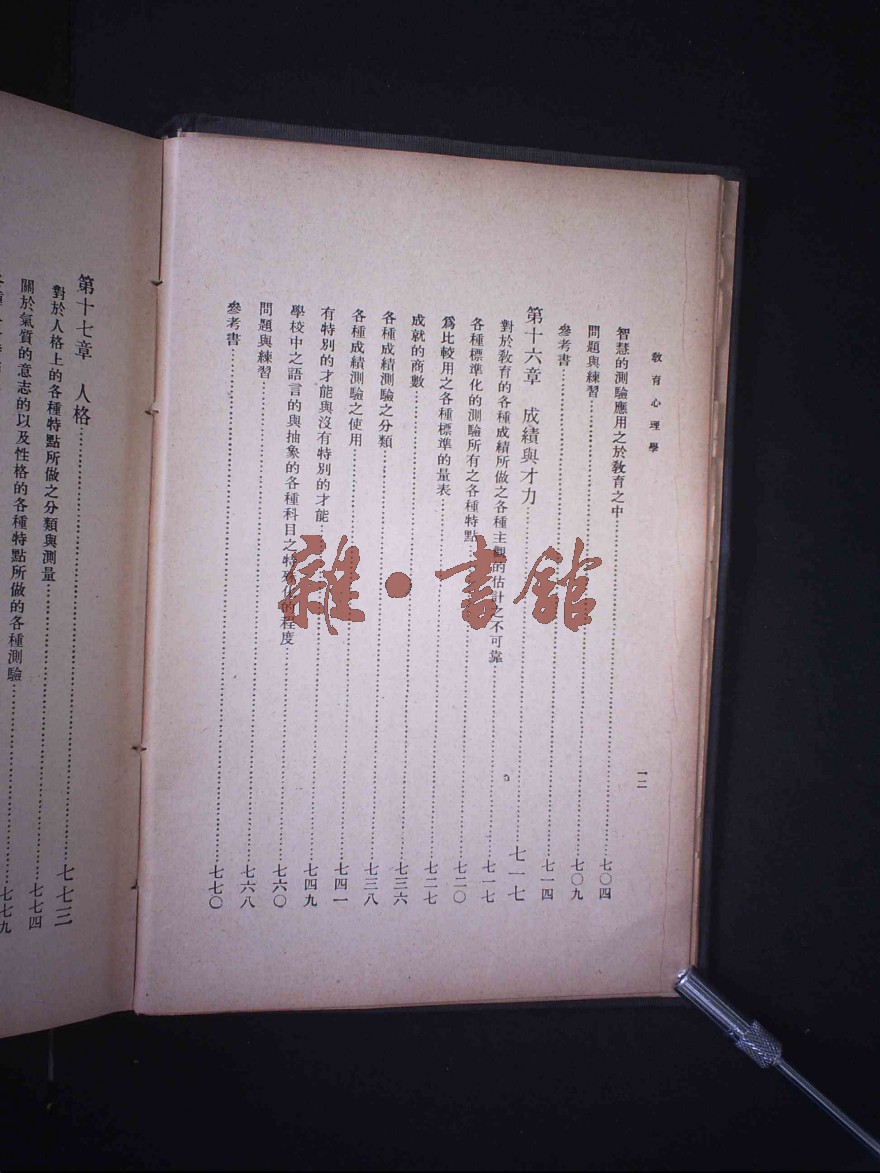 教育心理學
一二
智慧的測驗應用之於教育之中……七〇四
問題與練習……七〇九
參考書……七一四
第十六章 成績與才力……七一七
對於教育的各種成績所做之各種主觀的估計之不可靠……七一七
各種標準化的測驗所有之各種特點……七二〇
爲比較用之各種標準的量表……七二七
成就的商數……七三六
各種成績測驗之分類……七三八
各種成績測驗之使用……七四一
有特別的才能與沒有特別的才能……七四九
學校中之語言的與抽象的各種科目之特殊化的程度……七六〇
問題與練習……七六八
參考書……七七〇
第十七章 人格……七七三
對於人格上的各種特點所做之分類與測量……七七四
關於氣質的意志的以及性格的各種特點所做的各種測驗……七七九
雜·書館